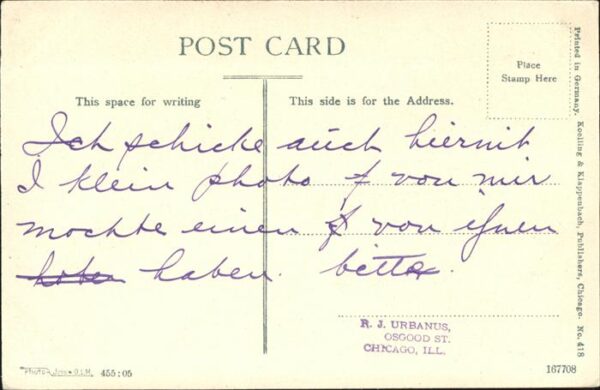 POST CARD
Place
Stamp Here
This space for writing
This side is for the Address.
Ich schicke auch hiermit
I klein photo f von mir
mochte einen von ihnen
haben. bitte.
R. J. URBANUS,
OSGOOD ST.
CHICAGO, ILL.
455:05
167708
Printed in Germany. Koelling & Klappenbach, Publishers, Chicago. No. 418